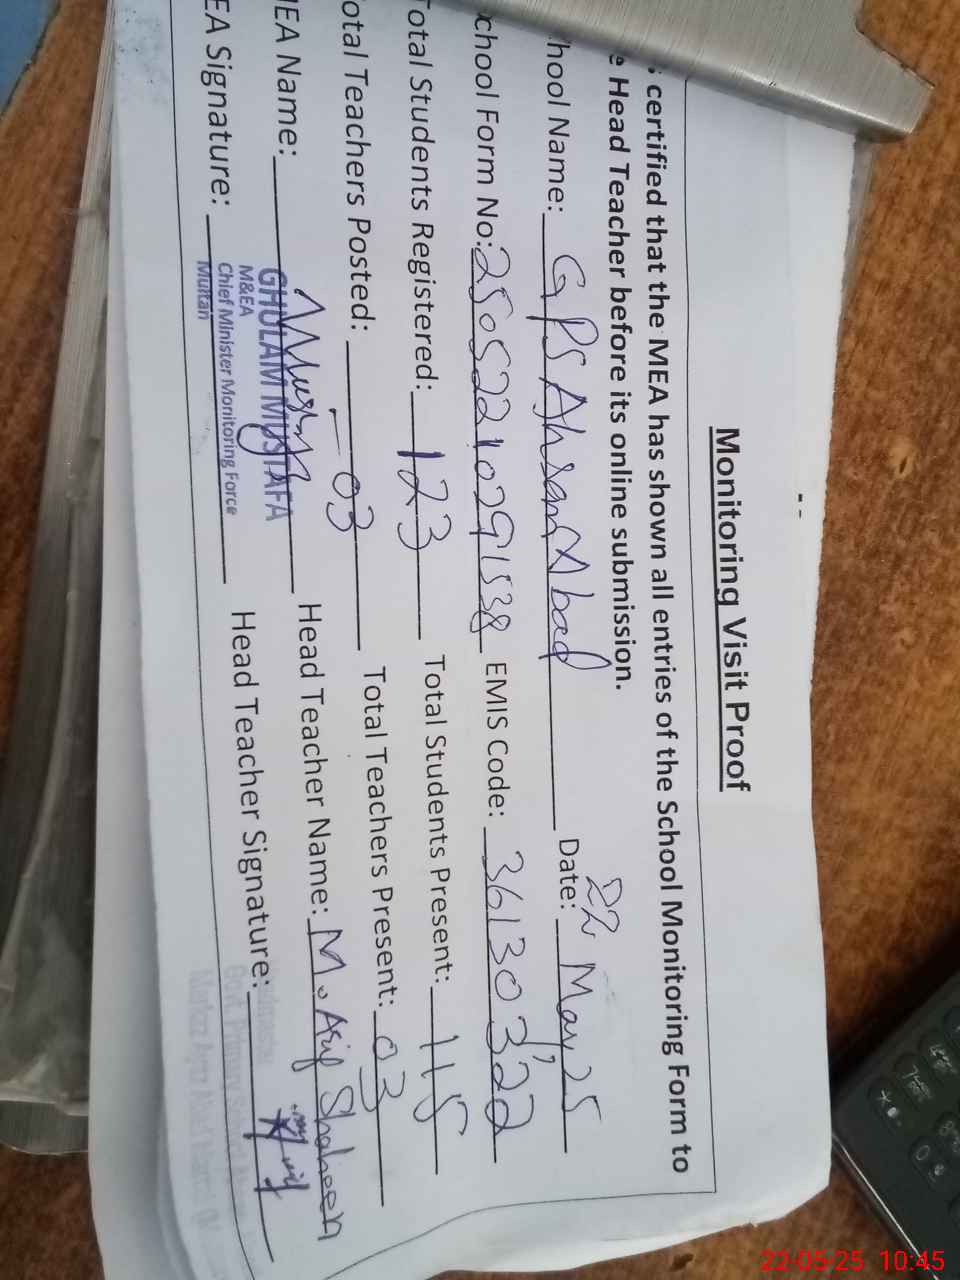 Monitoring Visit Proof
certified that the MEA has shown all entries of the School Monitoring Form to
e Head Teacher before its online submission.
hool Name: GPS Ahsan Abad Date: 22 May, 25
chool Form No: 25052210291538 EMIS Code: 36130322
Total Students Registered: 123 Total Students Present: 115
otal Teachers Posted: 03 Total Teachers Present: 03
EA Name: Head Teacher Name: M. Asif Shaheen
EA Signature: Head Teacher Signature:
GHULAM MUSTAFA
M&EA
Chief Minister Monitoring Force
Multan
22-05-25 10:45